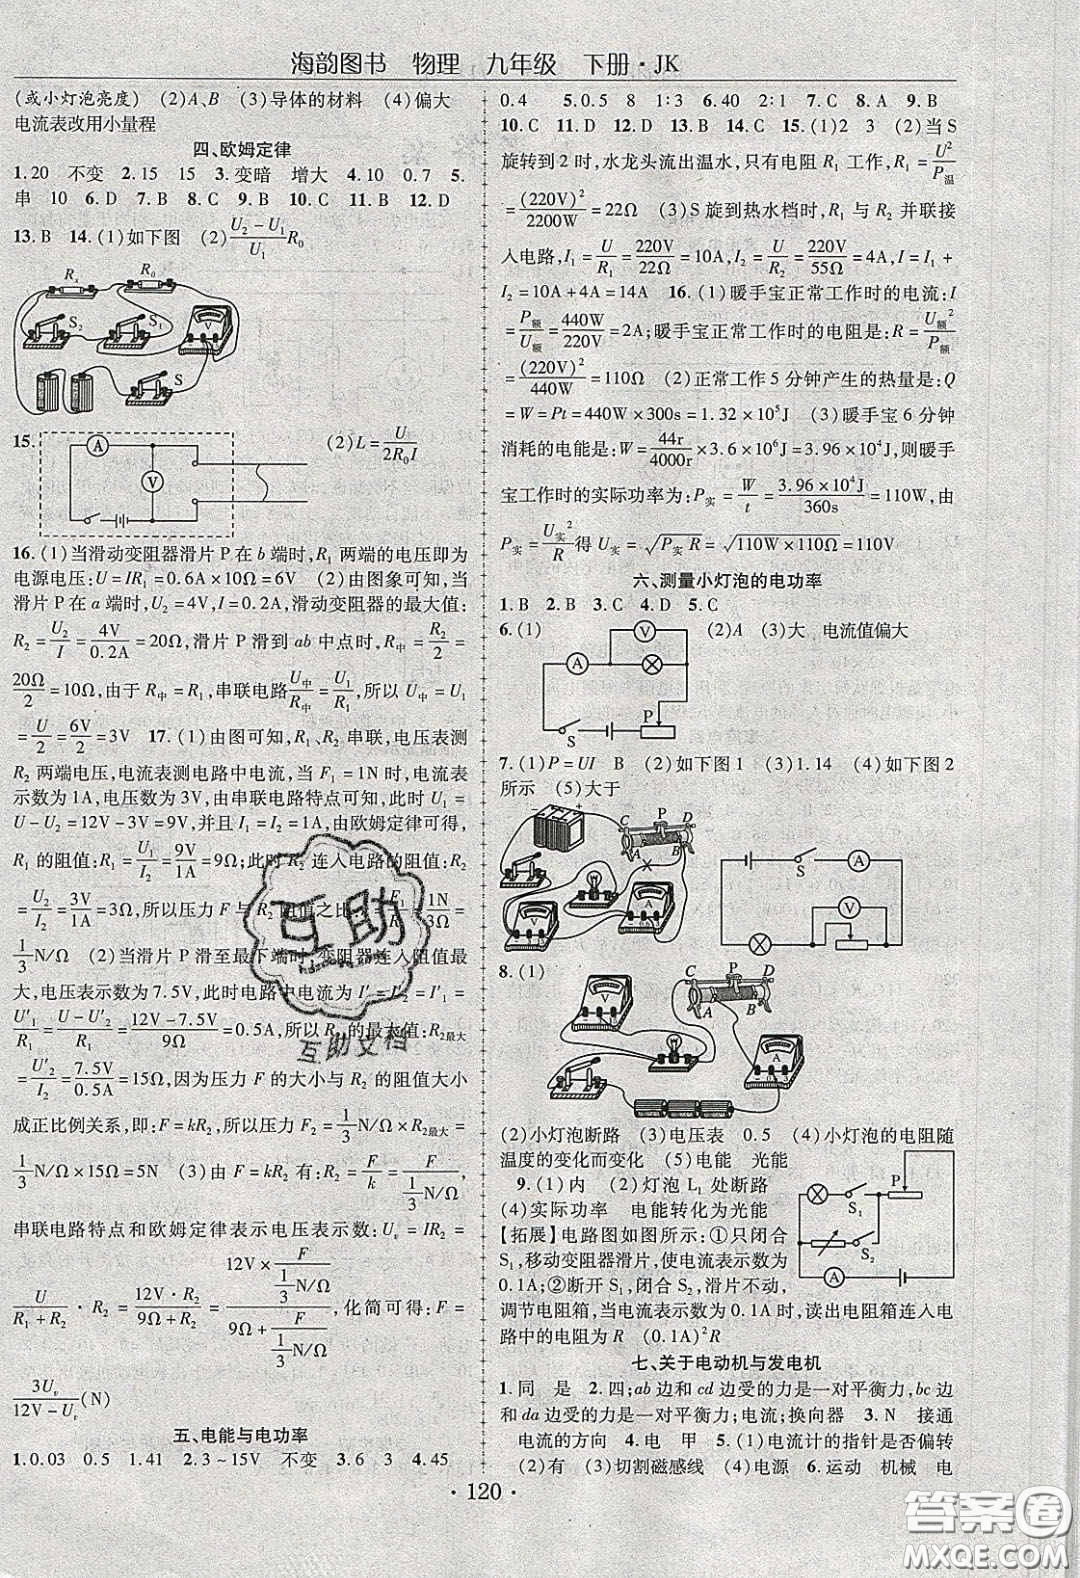 海韵图书 物理 九年级 下册·JK
(或小灯泡亮度) (2)A、B (3)导体的材料 (4)偏大
电流表改用小量程
四、欧姆定律
1.20 不变 2.15 15 3.变暗 增大 4.10 0.7 5.
串 10 6.D 7.B 8.C 9.B 10.C 11.B 12.D
13.B 14.(1)如下图 (2)\frac{U₂-U₁}{U₁}R₀
Rₓ R₀
S₂ S₁ V
S
15. A V (2)L=\frac{U}{2R₀I}
16.(1)当滑动变阻器滑片 P 在 b 端时,R₁ 两端的电压即为
电源电压:U=IR₁=0.6A×10Ω=6V (2)由图象可知,当
滑片 P 在 a 端时,U₂=4V,I=0.2A,滑动变阻器的最大值:
R₂=\frac{U₂}{I}=\frac{4V}{0.2A}=20Ω,滑片 P 滑到 ab 中点时,R中=\frac{R₂}{2}=
\frac{20Ω}{2}=10Ω,由于 R中=R₁,串联电路\frac{U中}{R中}=\frac{U₁}{R₁},所以 U中=U₁
=\frac{U}{2}=\frac{6V}{2}=3V 17.(1)由图可知,R₁、R₂ 串联,电压表测
R₂ 两端电压,电流表测电路中电流,当 F₁=1N 时,电流表
示数为 1A,电压表示数为 3V,由串联电路特点可知,此时 U₁=
U-U₂=12V-3V=9V,并且 I₁=I₂=1A,由欧姆定律可得,
R₁ 的阻值:R₁=\frac{U₁}{I₂}=\frac{9V}{1A}=9Ω;此时 R₂ 连入电路的阻值:R₂
=\frac{U₂}{I₂}=\frac{3V}{1A}=3Ω,所以压力 F 与 R₂ 阻值之比:\frac{F₁}{R₂}=\frac{1N}{3Ω}=
\frac{1}{3}N/Ω (2)当滑片 P 滑至最下端时,变阻器连入阻值最
大,电压表示数为 7.5V,此时电路中电流为 I′=I′₂=I′₁=
\frac{U′₁}{R₁}=\frac{U-U′₂}{R₁}=\frac{12V-7.5V}{9Ω}=0.5A,所以 R₂ 的最大值:R₂最大
=\frac{U′₂}{I₂}=\frac{7.5V}{0.5A}=15Ω,因为压力 F 的大小与 R₂ 的阻值大小
成正比例关系,即:F=kR₂,所以压力 F₂=\frac{1}{3}N/Ω×R₂最大=
\frac{1}{3}N/Ω×15Ω=5N (3)由 F=kR₂ 有:R₂=\frac{F}{k}=\frac{F}{\frac{1}{3}N/Ω},
串联电路特点和欧姆定律表示电压表示数:Uᵥ=IR₂=
\frac{U}{R₁+R₂}·R₂=\frac{12V·R₂}{9Ω+R₂}=\frac{12V×\frac{F}{\frac{1}{3}N/Ω}}{9Ω+\frac{F}{\frac{1}{3}N/Ω}},化简可得:F=
\frac{3Uᵥ}{12V-Uᵥ}(N)
五、电能与电功率
1.0.03 0.5 1.41 2.3~15V 不变 3.6 3 4.45
0.4 5.0.5 8 1∶3 6.40 2∶1 7.C 8.A 9.B
10.C 11.D 12.B 13.D 14.C 15.(1)2 3 (2)当 S
旋转到 2 时,水龙头流出温水,只有电阻 R₁ 工作,R₁=\frac{U²}{P温}
=\frac{(220V)²}{2200W}=22Ω (3)S 旋到热水档时,R₁ 与 R₂ 并联接
入电路,I₁=\frac{U}{R₁}=\frac{220V}{22Ω}=10A,I₂=\frac{U}{R₂}=\frac{220V}{55Ω}=4A,I=I₁+
I₂=10A+4A=14A 16.(1)暖手宝正常工作时的电流:I
=\frac{P额}{U额}=\frac{440W}{220V}=2A;暖手宝正常工作时的电阻是:R=\frac{U额²}{P额}
=\frac{(220V)²}{440W}=110Ω (2)正常工作 5 分钟产生的热量是:Q
=W=Pt=440W×300s=1.32×10⁵J (3)暖手宝 6 分钟
消耗的电能是:W=\frac{44r}{4000r}×3.6×10⁶J=3.96×10⁴J,则暖手
宝工作时的实际功率为:P实=\frac{W}{t}=\frac{3.96×10⁴J}{360s}=110W,由
P实=\frac{U实²}{R}得 U实=√(P实R)=√(110W×110Ω)=110V
六、测量小灯泡的电功率
1.B 2.B 3.C 4.D 5.C
6.(1) (2)A (3)大 电流值偏大
V A P S
7.(1)P=UI B (2)如下图1 (3)1.14 (4)如下图2
所示 (5)大于
C P D A B V A
S A V P
8.(1)
V C P D A B A
(2)小灯泡断路 (3)电压表 0.5 (4)小灯泡的电阻随
温度的变化而变化 (5)电能 光能
9.(1)内 (2)灯泡 L₁ 处断路
(4)实际功率 电能转化为光能
【拓展】电路图如图所示:①只闭合
S₁,移动变阻器滑片,使电流表示数为
0.1A;②断开 S₁,闭合 S₂,滑片不动,
调节电阻箱,当电流表示数为 0.1A 时,读出电阻箱连入电
路中的电阻为 R (0.1A)²R
P S₁ S₂ A
七、关于电动机与发电机
1.同 是 2.四;ab 边和 cd 边受的力是一对平衡力,bc 边
和 da 边受的力是一对平衡力;电流;换向器 3.N 接通
电流的方向 4.电 甲 5.(1)电流计的指针是否偏转
(2)有 (3)切割磁感线 (4)电源 6.运动 机械 电
·120·
互助
互助文档
答案圈
MXQE.COM